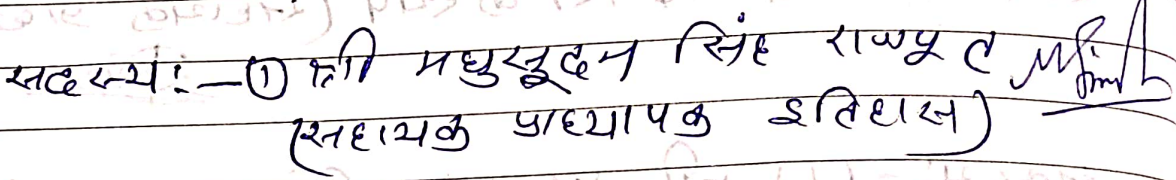 सदस्य :- ① श्री मधुसूदन सिंह राजपूत
(सहायक प्राध्यापक इतिहास)